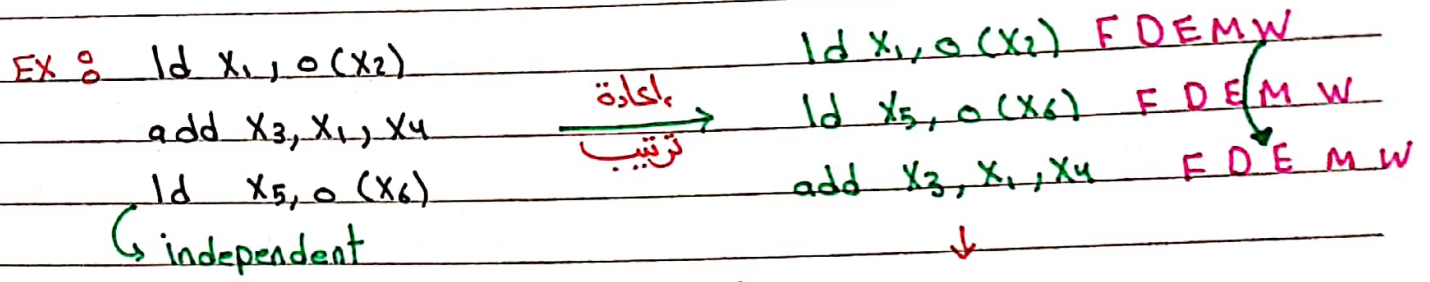 EX : ld X1, 0(X2)
add X3, X1, X4
ld X5, 0(X6)
independent
إعادة
ترتيب
ld X1, 0(X2) F D E M W
ld X5, 0(X6) F D E M W
add X3, X1, X4 F D E M W